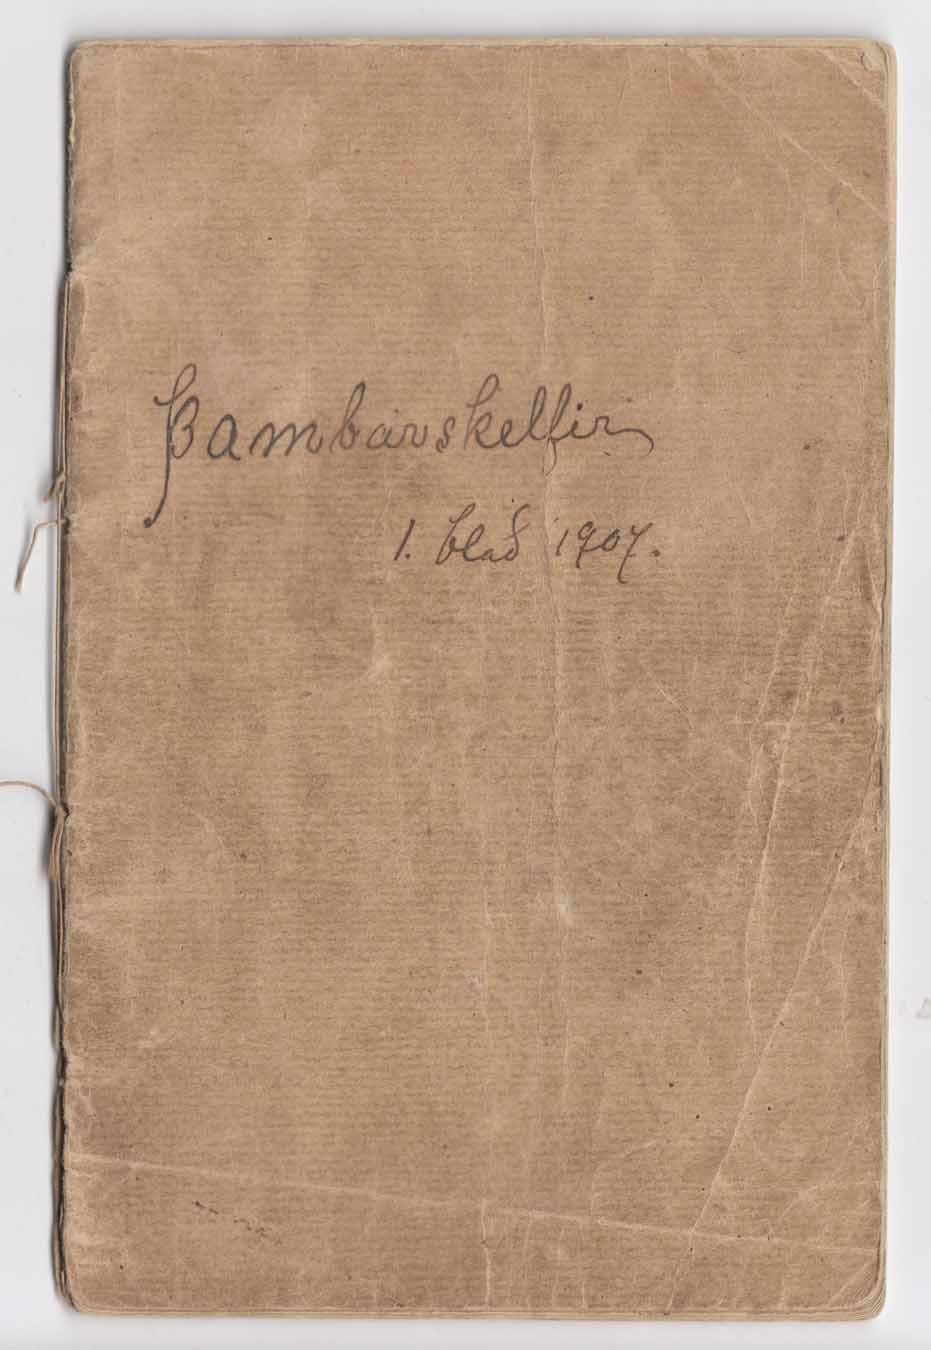 Þambarskelfir
1. blað 1907.